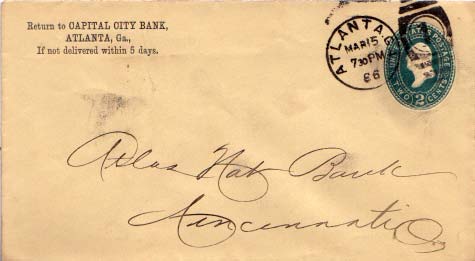 Return to CAPITAL CITY BANK,
ATLANTA, Ga.,
If not delivered within 5 days.
ATLANTA, GA.
MAR 15
730 PM
86
POSTAGE
TWO 2 CENTS
Atlas Nat Bank
Cincinnati O